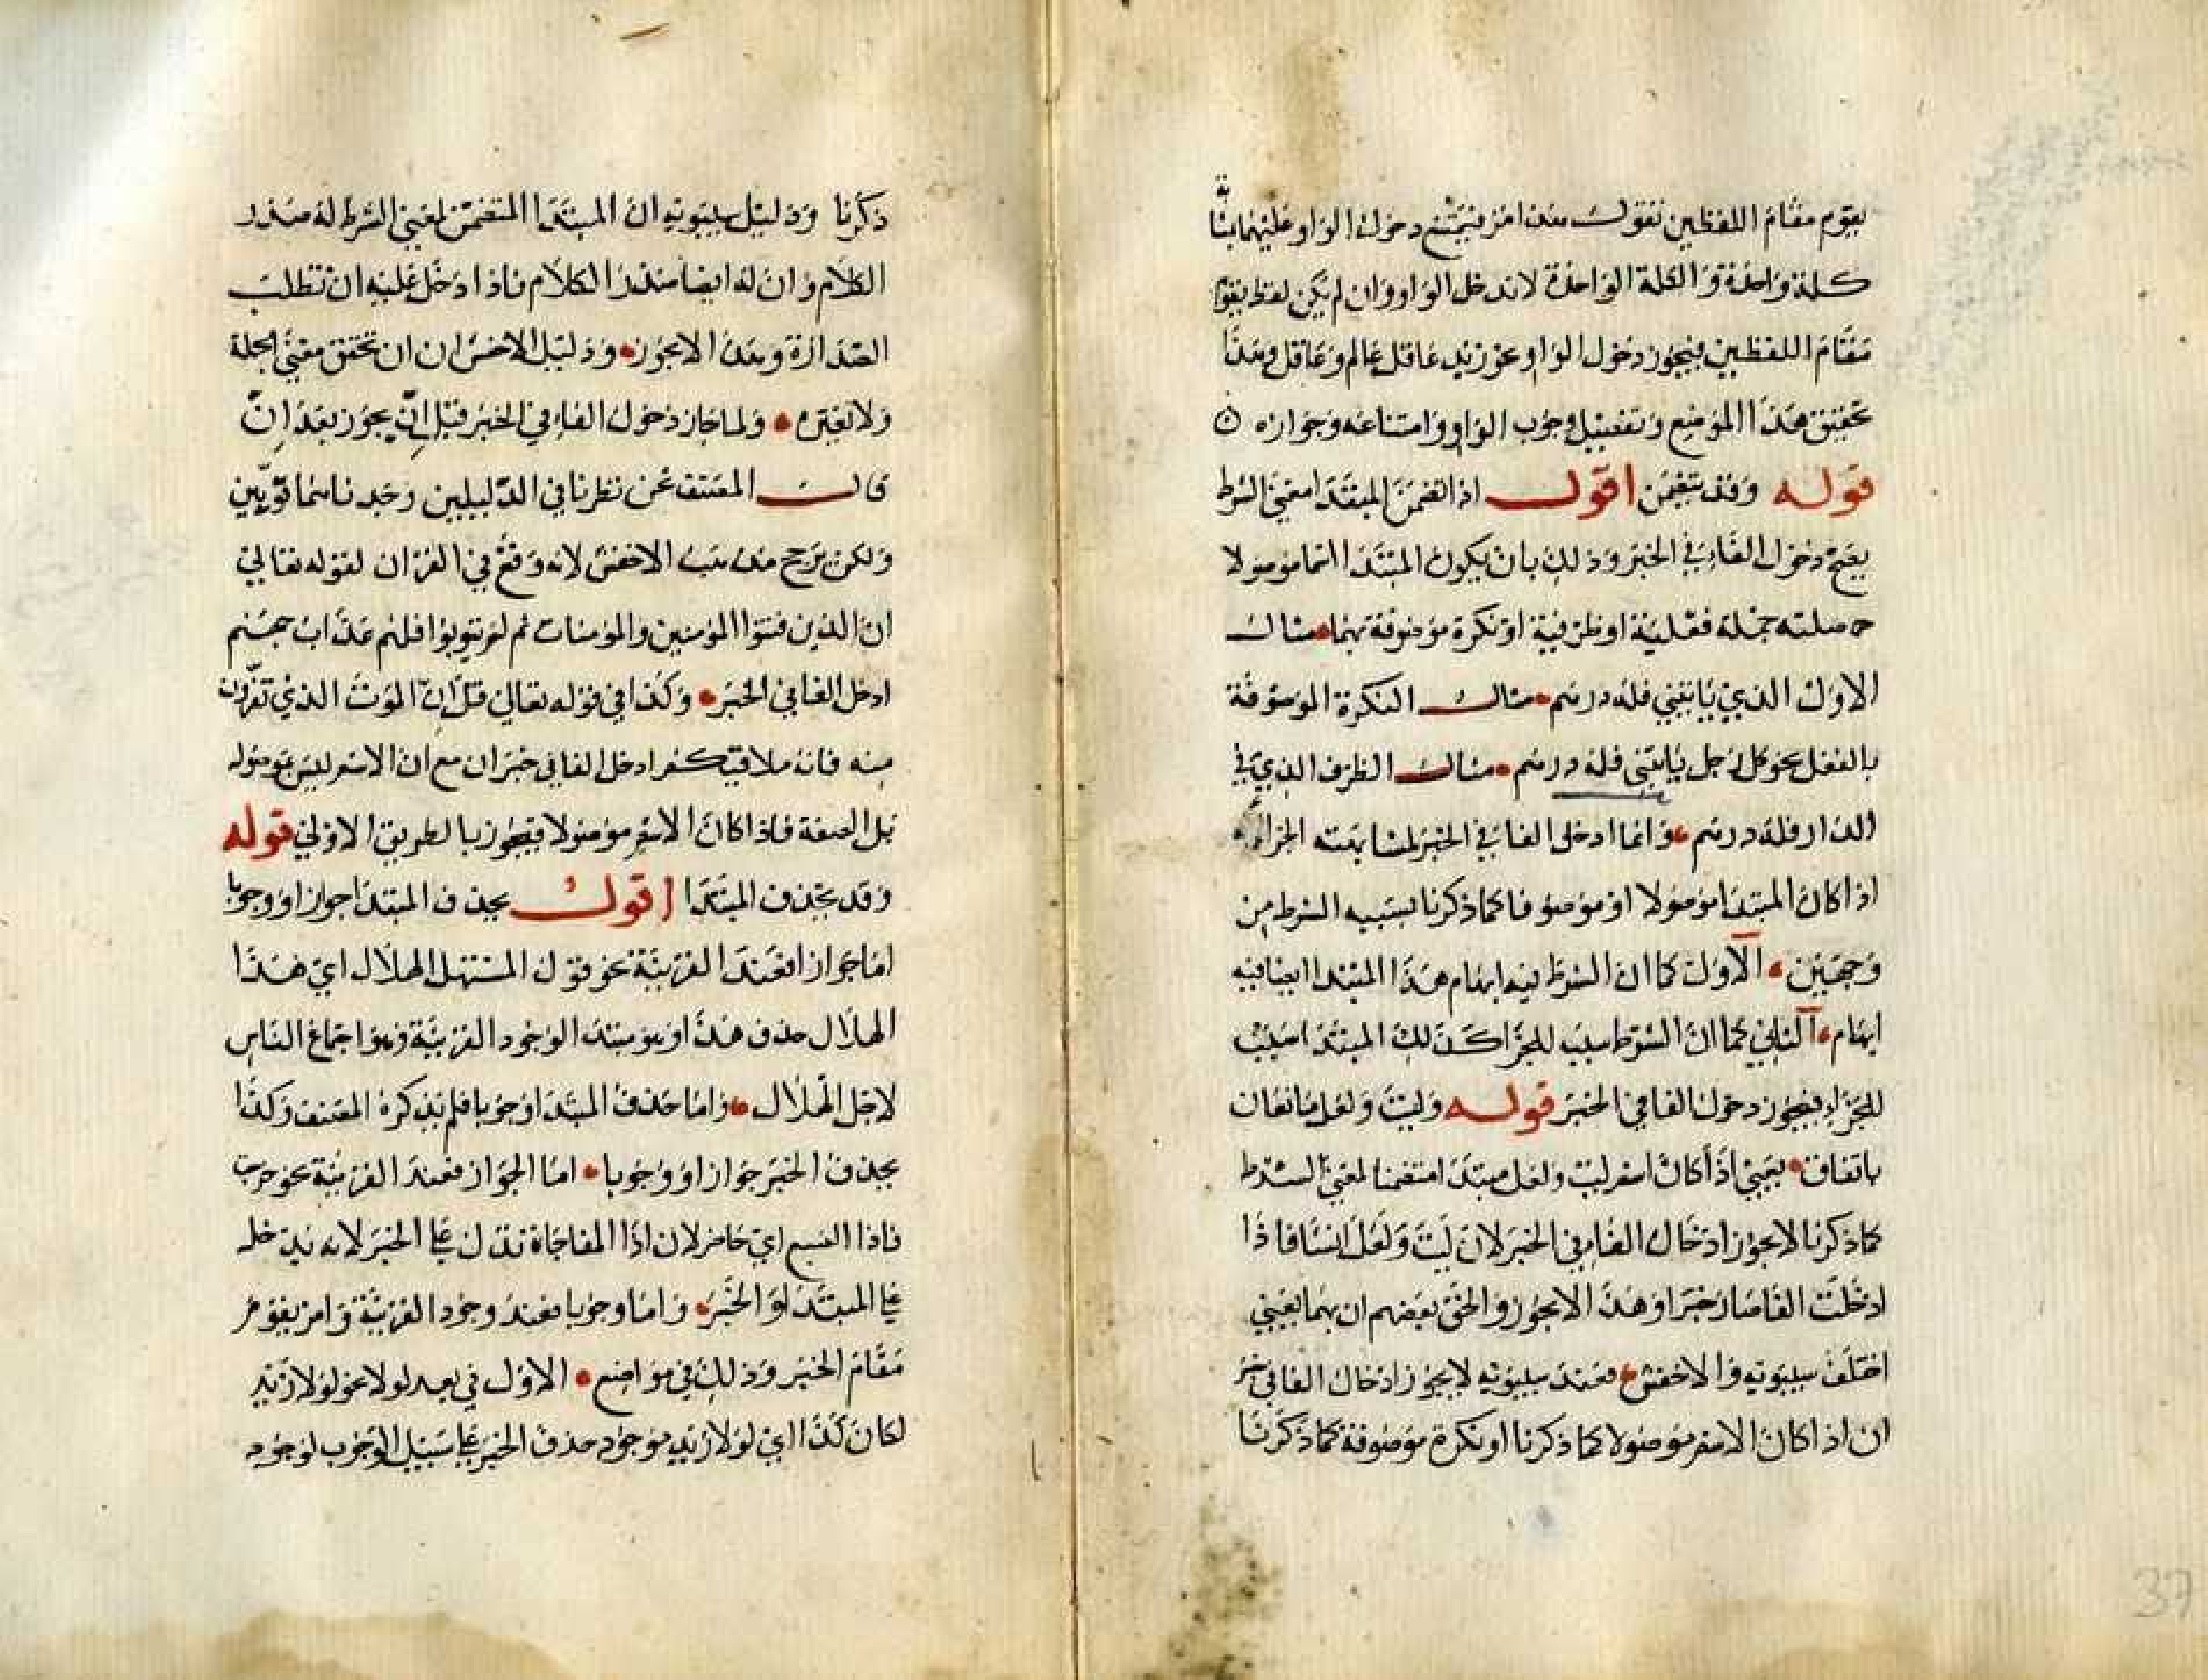 يقوم مقام اللفظين نقول هذا مز فيمتنع دخول الواو عليهما بمثابة
كلمة واحدة والكلمة الواحدة لا تدخل الواو وان لم يكن لفظ يقوم
مقام اللفظين فيجوز دخول الواو نحو زيد عاقل عالم وعاقل وهذا
تحقيق هذا الموضع وتفصيل وجوب الواو وامتناعه وجوازه
قوله وقد يتضمن اقول اذا تضمن المبتدا معنى الشرط
يصح دخول الفاء في الخبر وذلك بان يكون المبتدا اسما موصولا
صلته جملة فعلية او ظرفية او نكرة موصوفة بهما مثال
الاول الذي ياتيني فله درهم مثال النكرة الموصوفة
بالفعل نحو كل رجل ياتيني فله درهم مثال الظرف الذي في
الدار فله درهم وانما ادخل الفا في الخبر لمشابهته الجزاء
اذا كان المبتدا موصولا او موصوفا كما ذكرنا بسببيه الشرط من
وجهين الاول كما ان الشرط فيه ابهام هذا المبتدا ايضا فيه
ابهام الثاني كما ان الشرط سبب للجزا كذلك المبتدا سبب
للجزاء فيجوز دخول الفا في الخبر قوله وليت ولعل مانعان
باتفاق يعني اذا كان اسم ليت ولعل مبتدا متضمنا لمعنى الشرط
كما ذكرنا لا يجوز ادخال الفاء في الخبر لان ليت ولعل انشا فاذا
ادخلت الفا صار خبرا وهذا لا يجوز والحق بعضهم ان بهما يعني
اختلف سيبويه والاخفش فعند سيبويه لا يجوز ادخال الفا في خبر
ان اذا كان الاسم موصولا كما ذكرنا او نكرة موصوفة كما ذكرنا
ذكرنا ودليل سيبويه ان المبتدا المتضمن لمعنى الشرط له صدر
الكلام وان له ايضا صدر الكلام فاذا دخل عليه ان تطلب
الصدارة وهذا لا يجوز ودليل الاخفش ان ان تحقق معنى الجملة
ولا تغيره ولما جاز دخول الفاء في الخبر قبل ان يجوز بعد ان
قال المصنف نحن نظرنا في الدليلين وجدناهما قويين
ولكن يرجح مذهب الاخفش لانه وقع في القران لقوله تعالى
ان الذين فتنوا المؤمنين والمؤمنات ثم لم يتوبوا فلهم عذاب جهنم
ادخل الفا في الخبر وكذا في قوله تعالى قل ان الموت الذي تفرون
منه فانه ملاقيكم ادخل الفا في خبر ان مع ان الاسم ليس بموصوله
بل الصفة فاذا كان الاسم موصولا فيجوز بالطريق الاولى قوله
وقد يحذف المبتدا اقول يحذف المبتدا جوازا ووجوبا
اما جوازا فعند القرينة نحو قول المستهل الهلال اي هذا
الهلال حذف هذا وهو مبتدا لوجود القرينة وهو اجتماع الناس
لاجل الهلال واما حذف المبتدا وجوبا فلم يذكره المصنف وكذا
يحذف الخبر جوازا ووجوبا اما الجواز فعند القرينة نحو خرجت
فاذا السبع اي حاضر لان اذا المفاجاة تدل على الخبر لانه يدخله
على المبتدا والخبر واما وجوبا فعند وجود القرينة وامر يقوم
مقام الخبر وذلك في مواضع الاول في بعد لولا نحو لولا زيد
لكان كذا اي لولا زيد موجود حذف الخبر على سبيل الوجوب لوجود
37